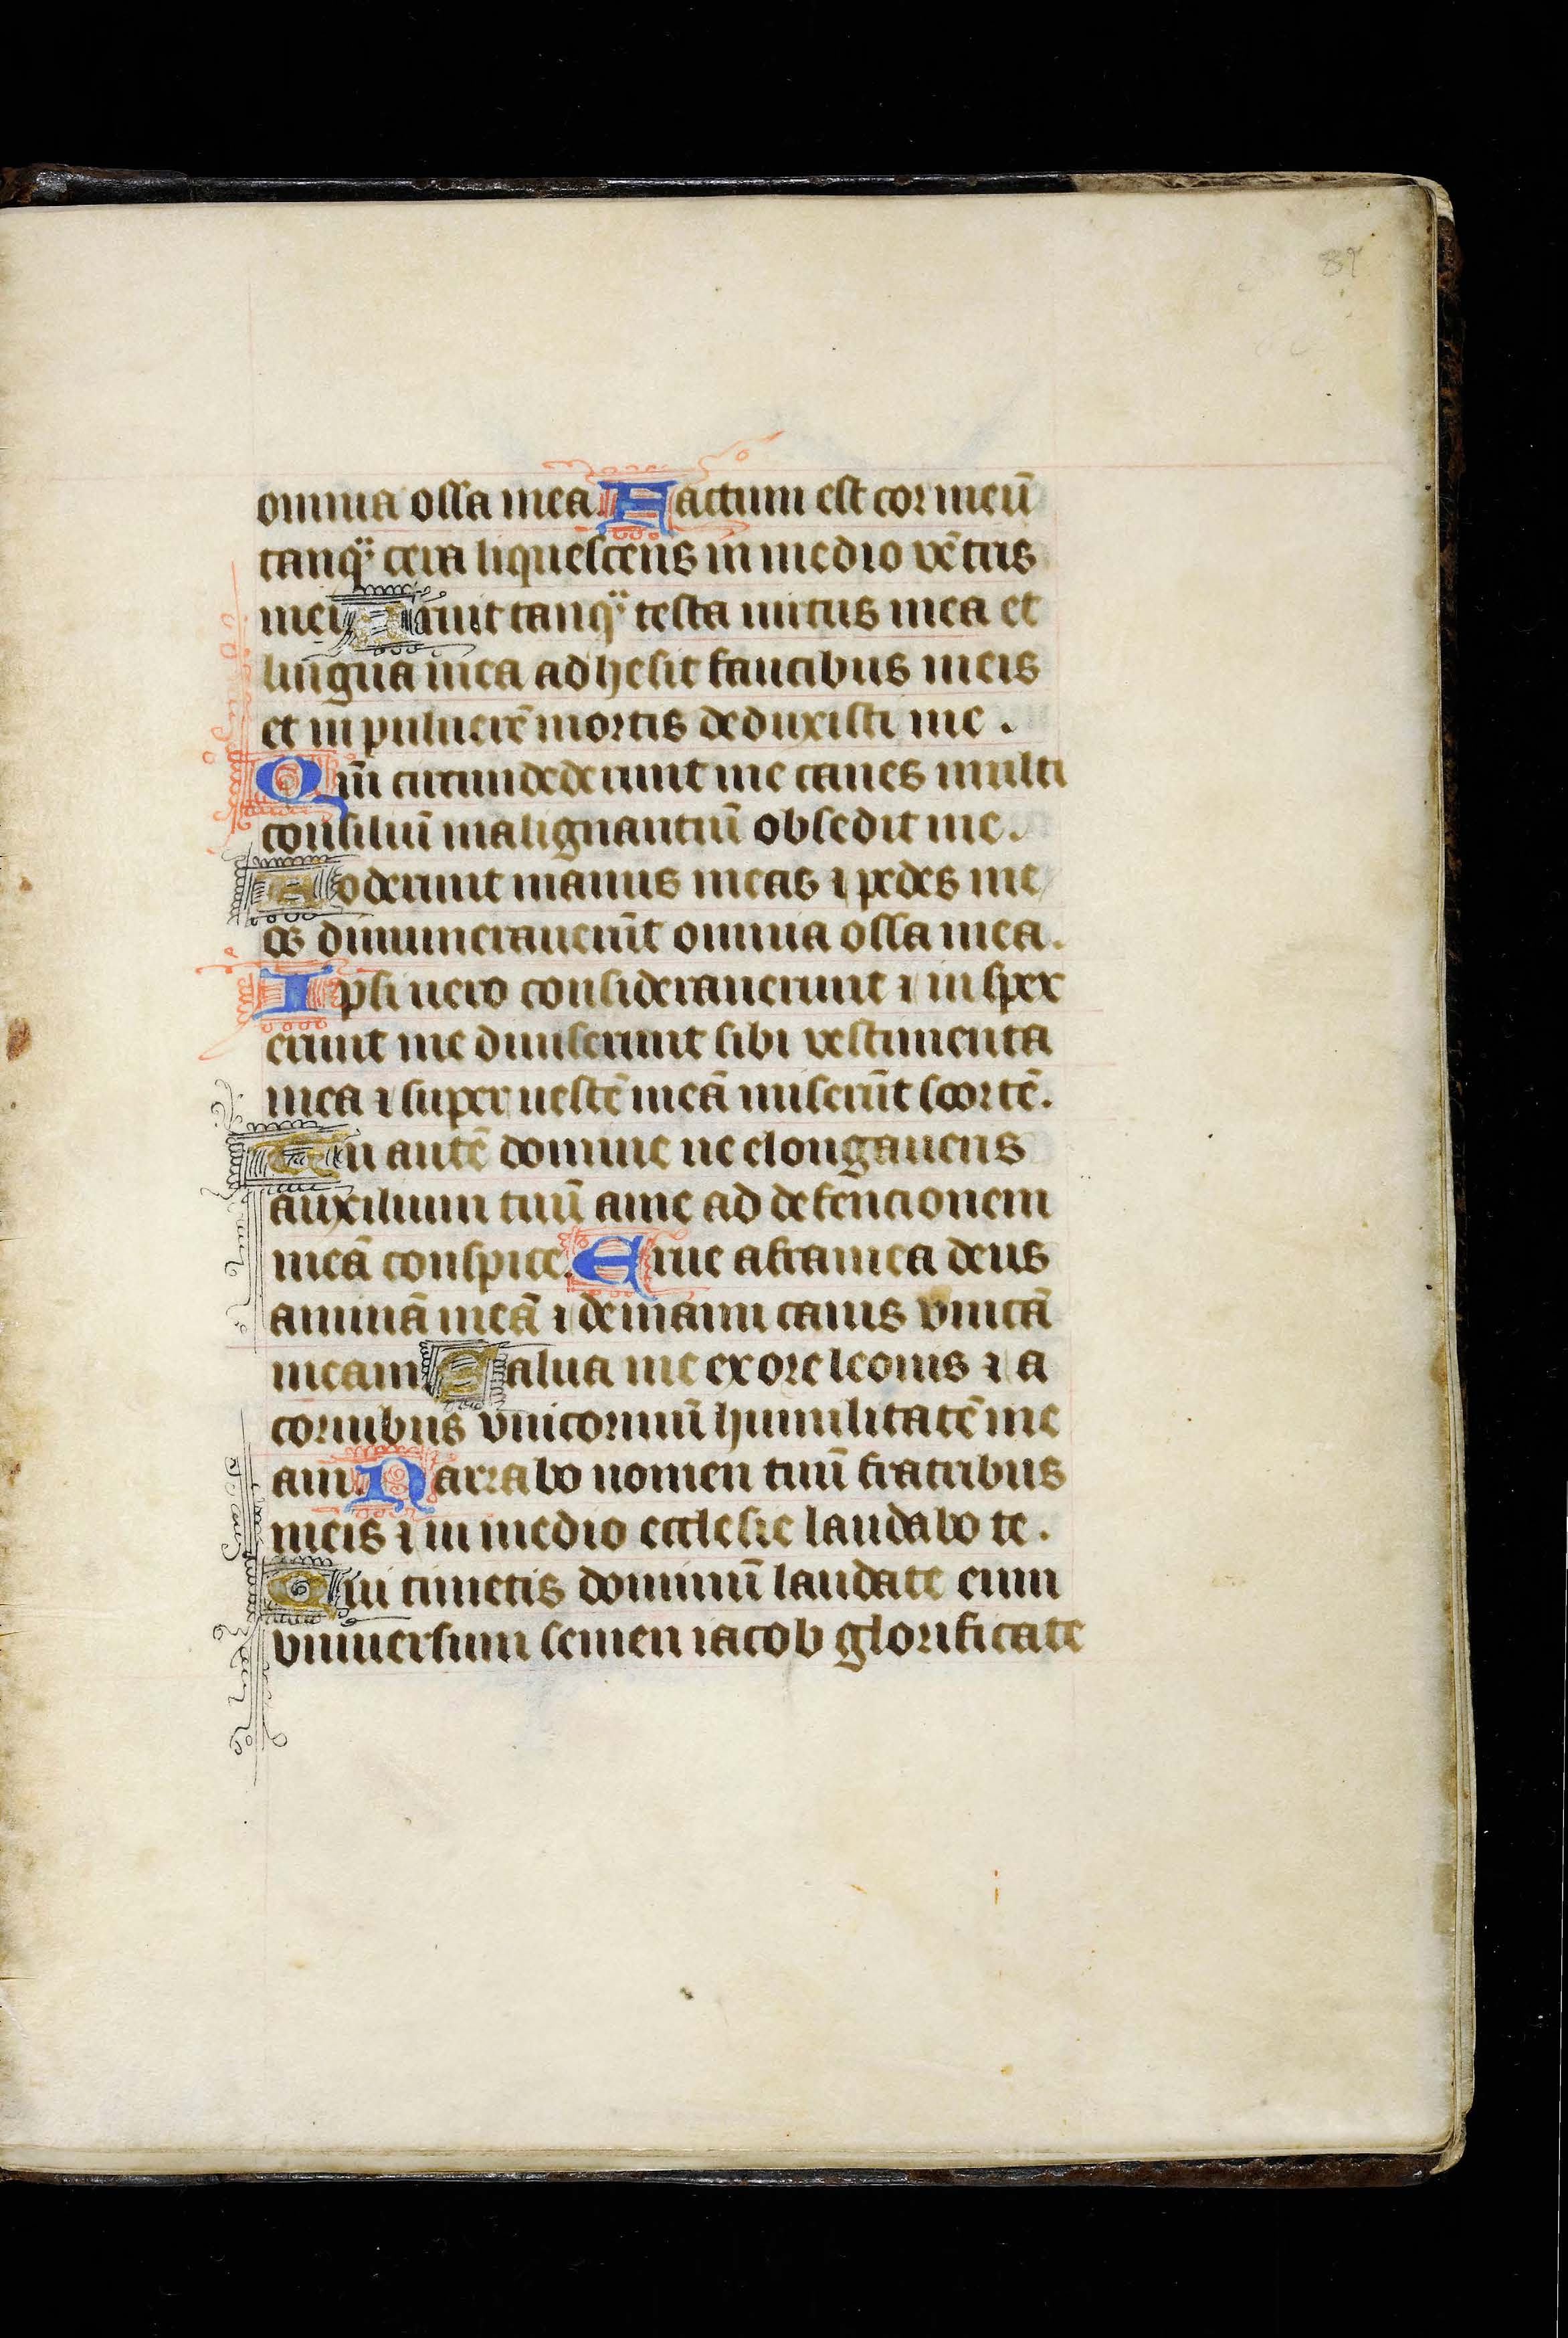 87
omnia ossa mea. Factum est cor meū
tanqᷓ cera liquescens in medio vētris
mei. Aruit tanqᷓ testa uirtus mea et
lingua mea adhesit faucibus meis
et in puluerē mortis deduxisti me.
Qm̄ circumdederunt me canes multi
consiliū malignantiū obsedit me.
Foderunt manus meas ⁊ pedes me
os dinumerauerūt omnia ossa mea.
Ipsi uero considerauerunt ⁊ inspex
erunt me diuiserunt sibi vestimenta
mea ⁊ super uestē meā miserūt soortē.
Tu autē domine ne elongaueris
auxilium tuū a me ad defencionem
meā conspice. Erue a framea deus
animā meā ⁊ de manu canis vnicā
meam. Salua me ex ore leonis ⁊ a
cornibus vnicornuū humilitatē me
am. Narrabo nomen tuū fratribus
meis ⁊ in medio ecclesie laudabo te.
Qui timetis dominū laudate eum
vniuersum semen iacob glorificate